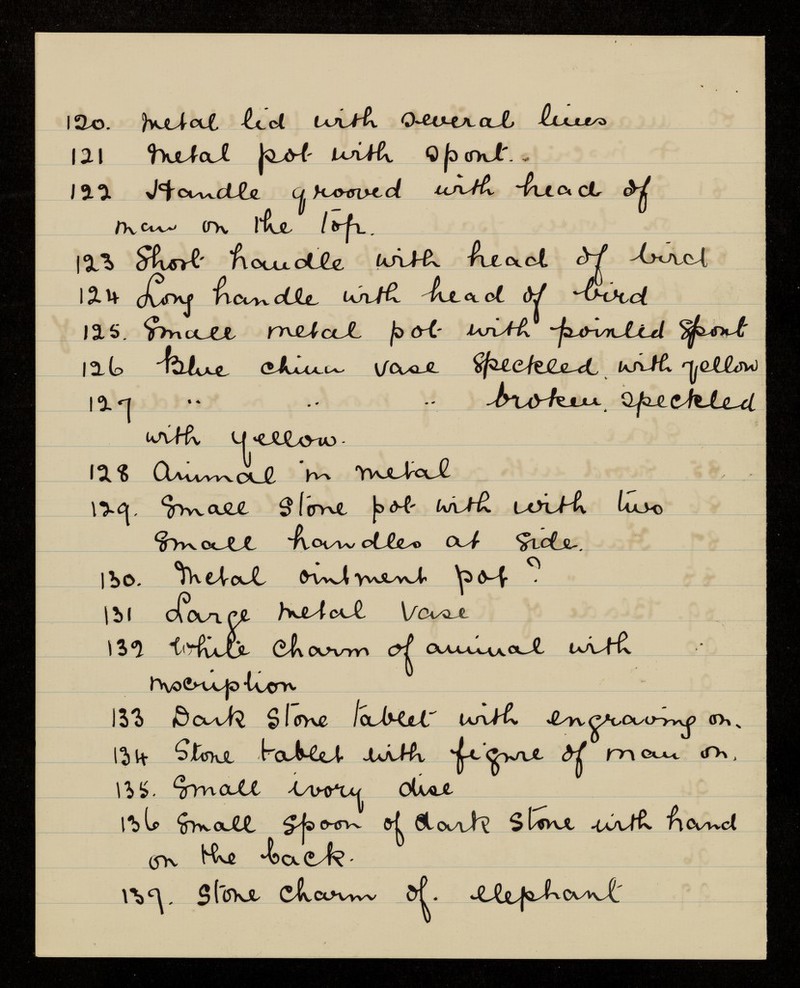 120. Metal lid with several lines
121 Metal pot with spout.
122 Handle grooved with head of
man on the top.
123 Short handle with head of bird
124 Long handle with head of bird
125. Small metal pot with pointed spout
126 Blue china vase speckled with yellow
127 " " " broken. speckled
with yellow.
128 Animal in metal
129. Small stone pot with with two
small handles at side.
130. Metal ointment pot ?
131 Large metal vase
132 White charm of animal with
inscription
133 Dark stone tablet with engraving on.
134 Stone tablet with figure of man on.
135. Small ivory disc
136 Small spoon of dark stone with hand
on the back.
137. Stone charm of. elephant